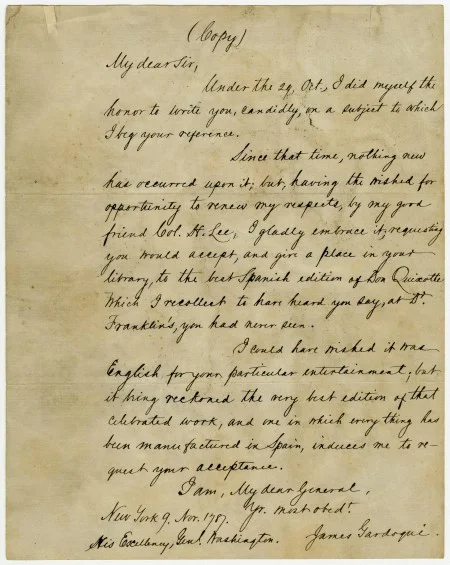 (Copy)
My dear Sir,
Under the 29, Oct., I did myself the
honor to write you, candidly, on a subject to which
I beg your reference.
Since that time, nothing new
has occurred upon it; but, having the wished for
opportunity to renew my respects, by my good
friend Col. H. Lee, I gladly embrace it; requesting
you would accept, and give a place in your
library, to the best Spanish edition of Don Quixotte
which I recollect to have heard you say, at Dr.
Franklin's, you had never seen.
I could have wished it was
English for your particular entertainment; but
it being reckoned the very best edition of that
celebrated work, and one in which every thing has
been manufactured in Spain, induces me to re-
quest your acceptance.
I am, My dear General,
Yr. most obedt.
New York 9, Nov. 1787.
His Excellency, Genl. Washington.
James Gardoqui.